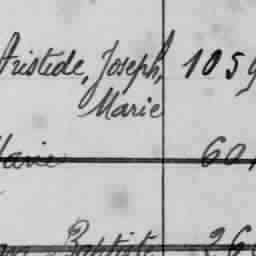 Aristide, Joseph, 1059
Marie
Marie 60
Baptiste 26